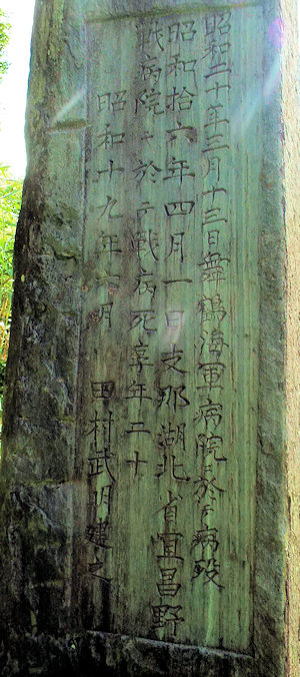 昭和二十年三月十三日舞鶴海軍病院ニ於テ病歿
昭和拾六年四月一日支那湖北省宜昌野
戦病院ニ於テ戦病死享年二十
昭和十九年 月 田村武明建之